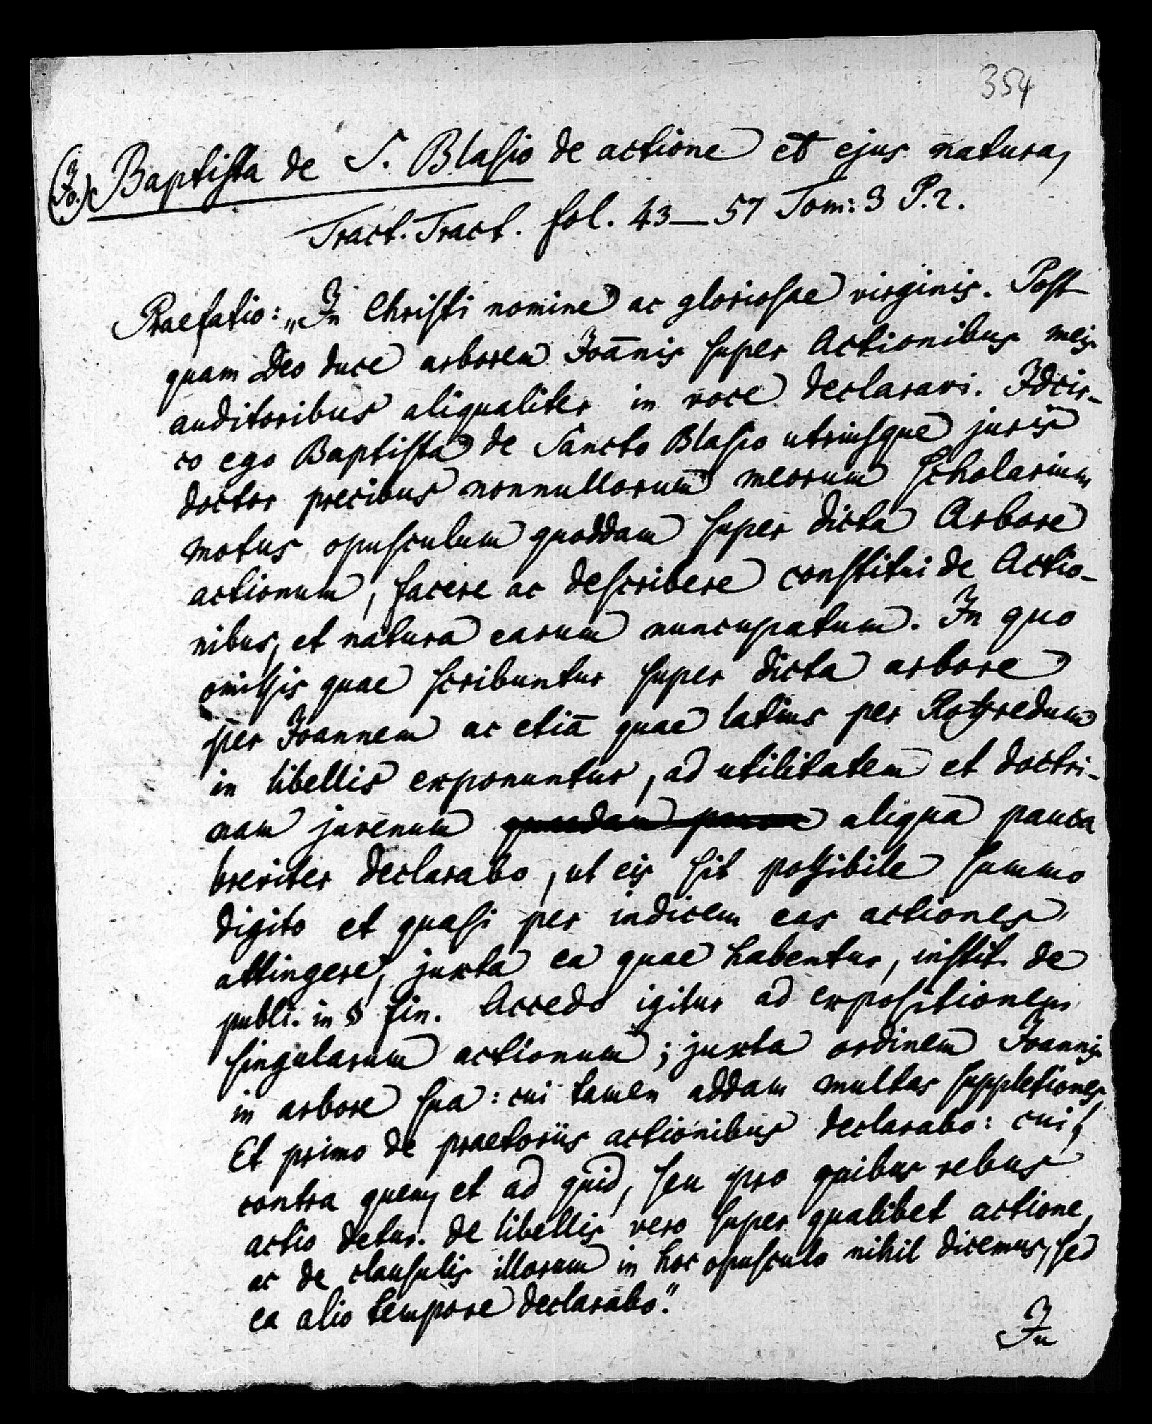 354
(Jo.) Baptista de S. Blasio de actione et ejus natura,
Tract. Tract. fol. 43—57 Tom: 3 P. 2.
Praefatio: „In Christi nomine ac gloriosae virginis. Post
quam Deo duce arborem Joānis super Actionibus meis
auditoribus aliqualiter in voce declaravi. Idcir-
co ego Baptista de Sancto Blasio utriusque juris
doctor precibus nonnullorum meorum Scholarium
motus opusculum quoddam super dicta Arbore
actionum, facere ac describere constitui de Actio-
nibus, et natura earum nuncupatum. In quo
omissis quae scribuntur super dicta arbore
per Joannem ac etiā quae latius per Roffredum
in libellis exponuntur, ad utilitatem et doctri-
nam juvenum aliqua pauca
breviter declarabo, ut eis sit possibile summo
digito et quasi per indicem eas actiones
attingere, juxta ea quae habentur, instit. de
publi. in § fin. Accedo igitur ad expositionem
singularum actionum; juxta ordinem Joannis
in arbore sua: cui tamen addam multas suppletiones.
Et primo de praetoriis actionibus declarabo: cui,
contra quem, et ad quid, seu pro quibus rebus
actio detur. de libellis vero super qualibet actione,
ac de clausulis illorum in hoc opusculo nihil dicemus, sed
ea alio tempore declarabo."
In